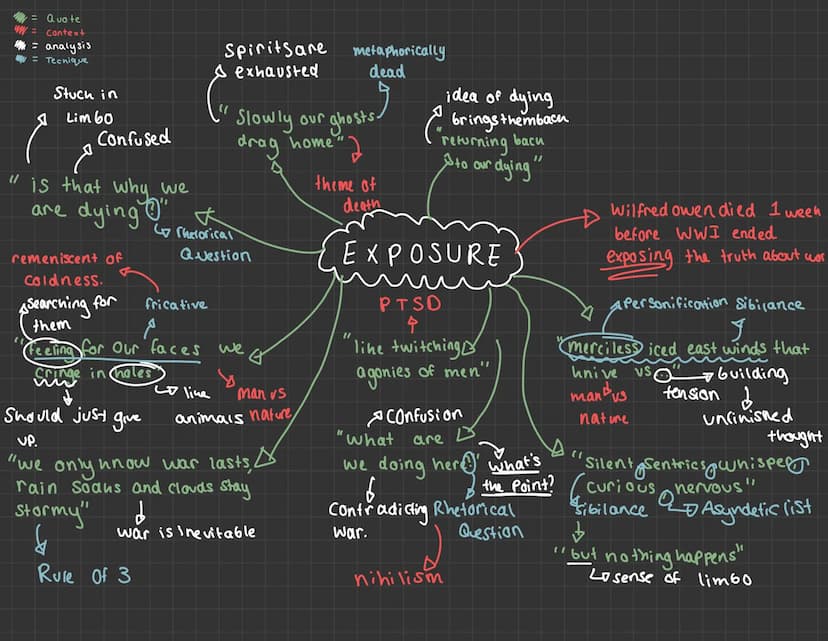 = Quote
= Context
= analysis
= Tecnique
Spirits are
exhausted
metaphorically
dead
"Slowly our ghosts
drag home"
theme of
death
idea of dying
brings them back
"returning back
to our dying"
Stuck in
Limbo
Confused
"is that why we
are dying?"
Rhetorical
Question
EXPOSURE
Wilfred owen died 1 week
before WWI ended
exposing the truth about war
remeniscent of
coldness.
searching for
them
fricative
"feeling for our faces we
cringe in holes
like
animals
man vs
nature
Should just give
up.
PTSD
"like twitching
agonies of men"
Personification
Sibilance
"merciless iced east winds that
knive us..."
building
tension
man vs
nature
unfinished
thought
"we only know war lasts,
rain soaks and clouds stay
stormy"
war is inevitable
Rule of 3
confusion
"what are
we doing here?"
what's
the point?
Contradicting
war.
Rhetorical
Question
nihilism
"Silent, sentries, whisper,
curious, nervous"
sibilance
Asyndetic list
"but nothing happens"
sense of limbo